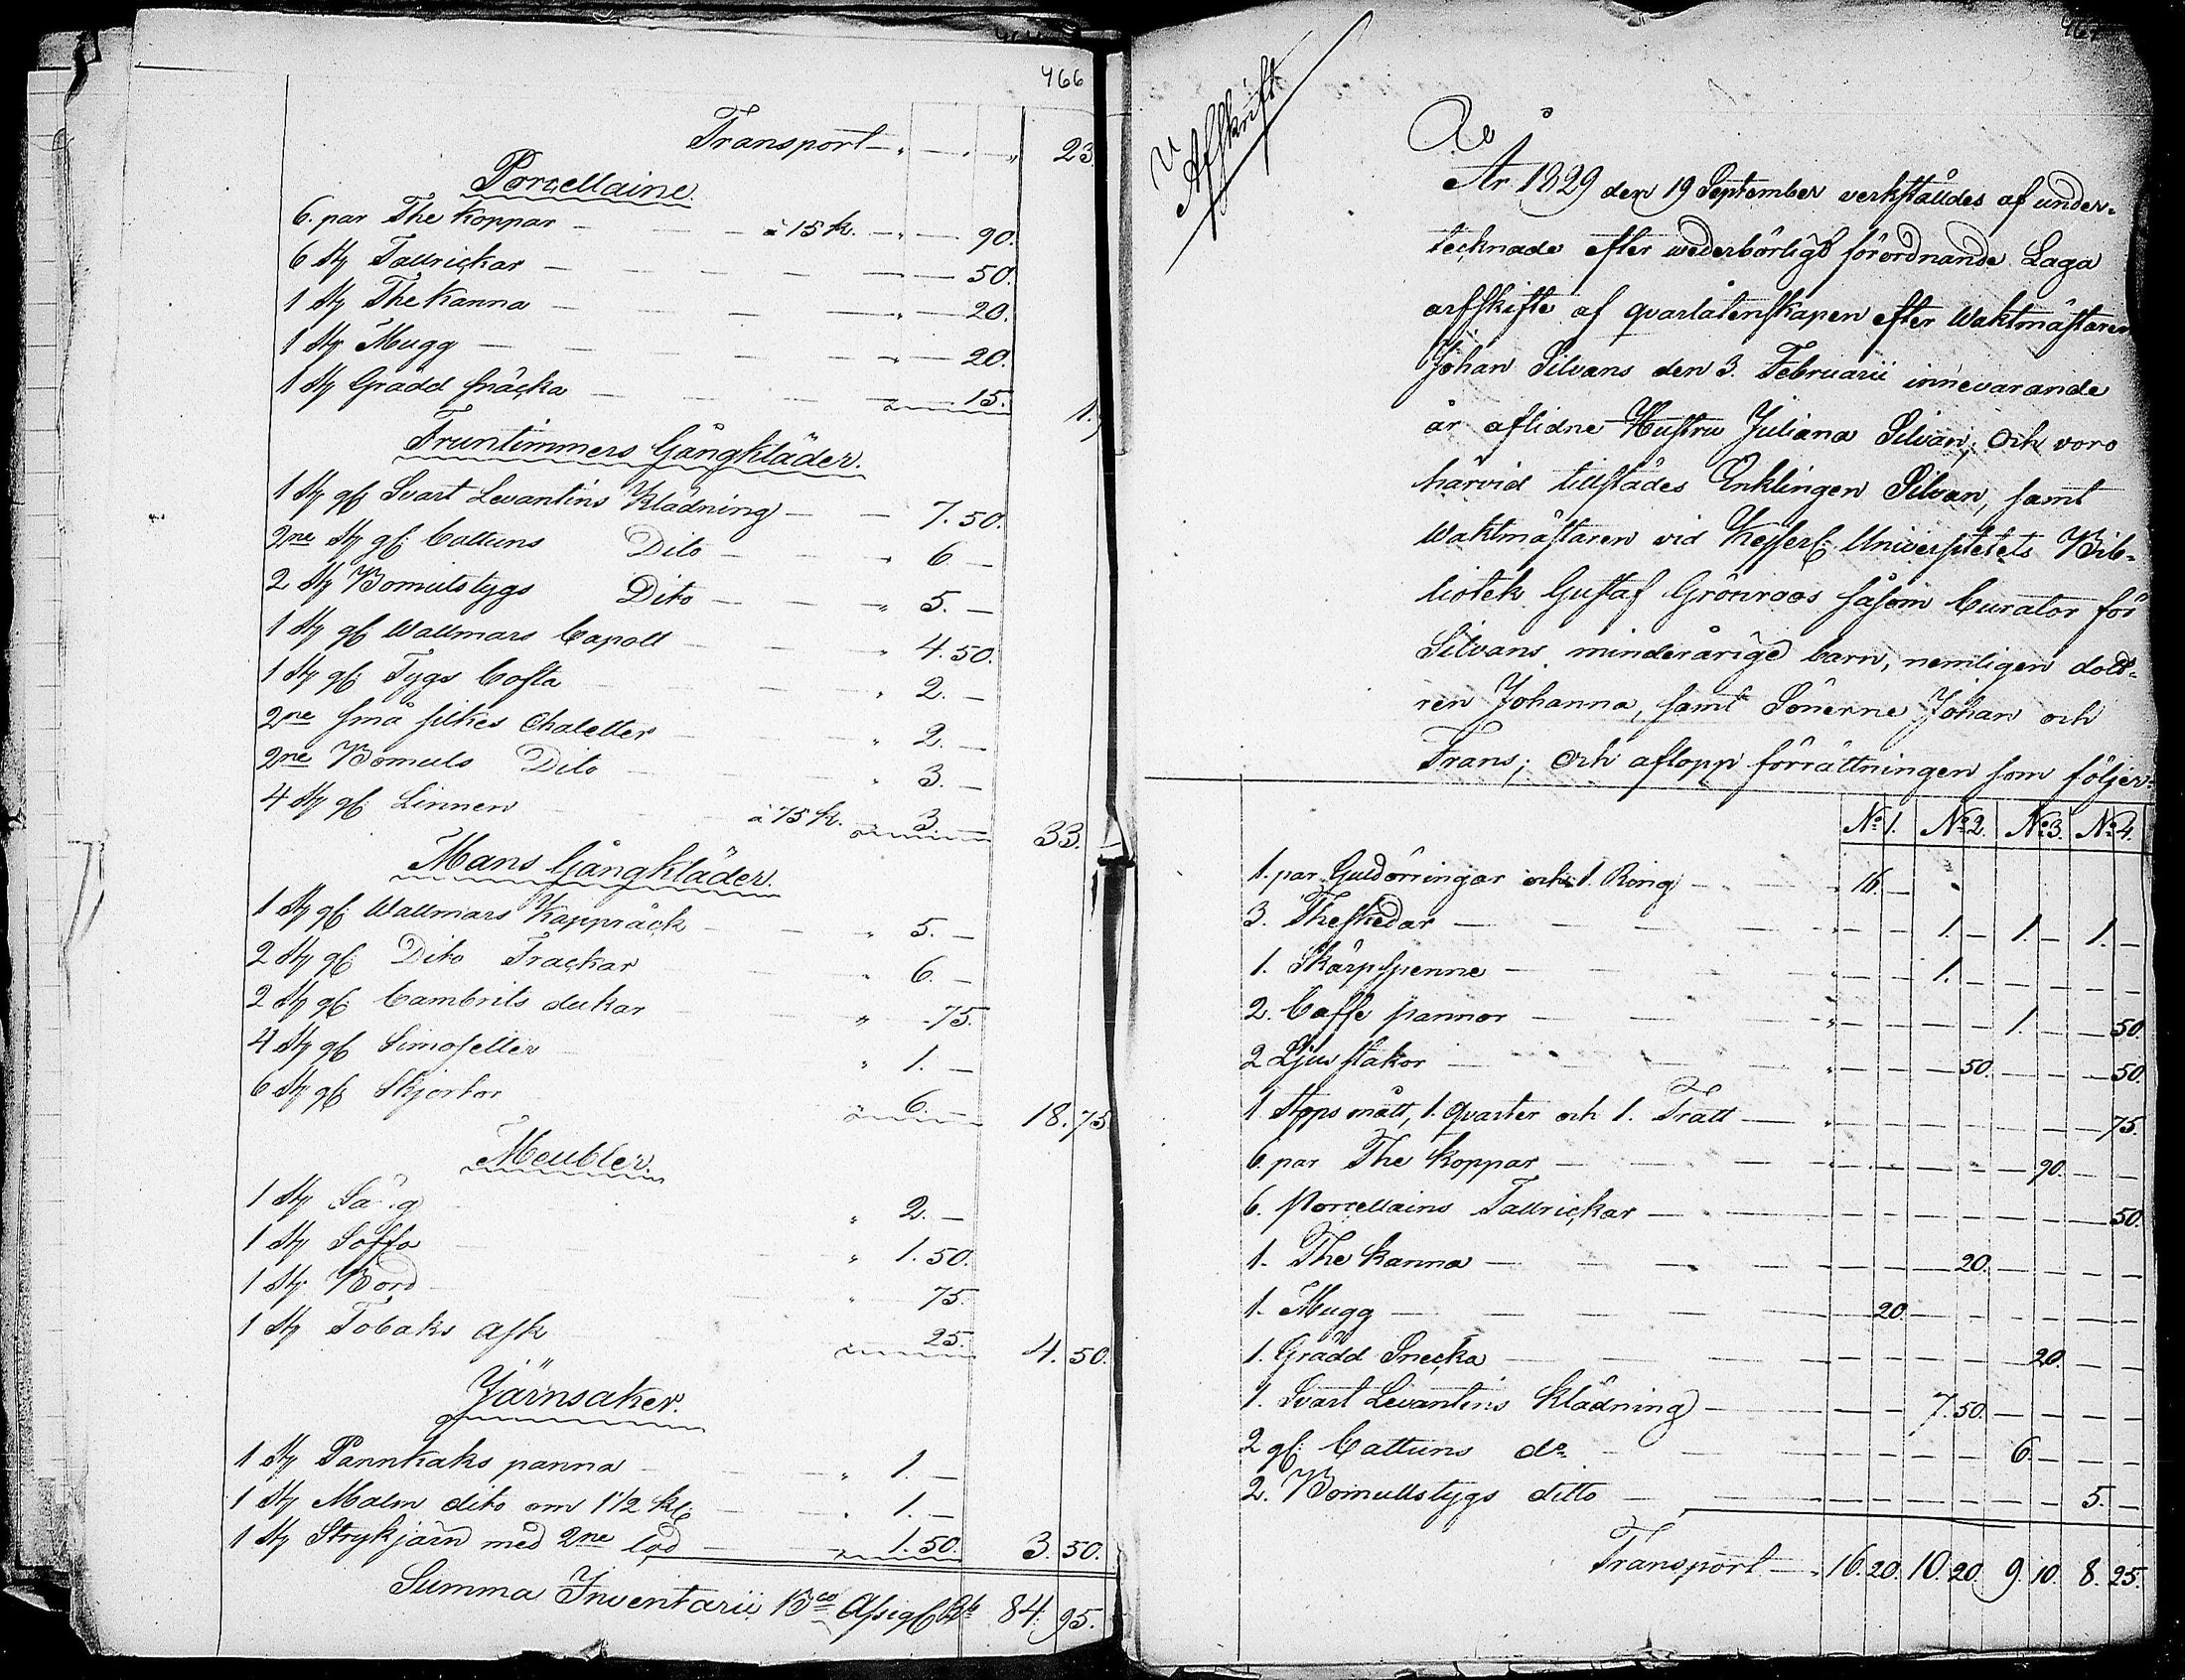 466
Transport — 23.
Porcellaine.
6. par The Koppar — à 15 k. — 90.
6 St Tallrickar — 50.
1 St The Kanna — 20.
1 St Mugg — 20.
1 St Grädd snäcka — 15. 1.9
Fruntimmers Gångkläder.
1 St gl Svart Levantins Klädning — 7. 50.
2ne St gl: Cattuns Dito — 6. —
2 St Bomulstygs Dito — 5. —
1 St gl Wallmars Capott — 4. 50.
1 St gl: Tygs Cofta — 2. —
2ne små silkes Chaletter — 2. —
2ne Bomuls Dito — 3. —
4 St gl: Linnen à 75 k. — 3 — 33. —
Mans Gångkläder.
1 St gl: Wallmars Kappråck — 5. —
2 St gl: Dito Frackar — 6. —
2 St gl: Cambrits dukar — 75.
4 St gl Simosetter — 1. —
6 St gl Skjortor — 6. — 18. 75.
Meubler.
1 St Säng 2. —
1 St Soffa 1. 50.
1 St Bord 75.
1 St Tobaks ask 25. 4. 50.
Järnsaker.
1 St Pannkaks panna — 1. —
1 St Malm dito om 1 1/2 kl: — 1. —
1 St Strykjärn med 2ne lod — 1. 50. 3. 50.
Summa Inventarii Bco Assigl Rb 84. 95.
467
Afskrift
År 1829 den 19 September verkställdes af under=
tecknade efter wederbörligt förordnande Laga
arfskifte af qvarlåtenskapen efter Waktmästaren
Johan Silvans den 3. Februarii innevarande
år aflidne Hustru Juliana Silvan; Och voro
härvid tillstädes Enklingen Silvan, samt
Waktmästaren vid Kejserl: Universitetets Bib=
liotek Gustaf Grönroos såsom Curator för
Silvans minderårige barn, nemligen dott=
ren Johanna, samt Sönerne Johan och
Frans; Och aflopp förrättningen som följer:
No 1. No 2. No 3. No 4.
1. par Guldörringar och 1. Ring — 16. —
3. Theskedar — 1. — 1. — 1. —
1. Skärpspenne — 1. —
2. Caffe pannor — 1. — 50.
2 Ljus stakor — 50. — 50.
1 Stops mått, 1. qvarter och 1. Tratt — 75.
6. par The Koppar — 90. —
6. Porcellains Tallrickar — 50.
1. The Kanna — 20. —
1. Mugg — 20. —
1. Grädd Snecka — 20. —
1. Svart Levantins Klädning — 7. 50. —
2 gl: Cattuns do — 6. —
2. Bomullstygs ditto — 5. —
Transport — 16. 20. 10. 20. 9. 10. 8. 25.